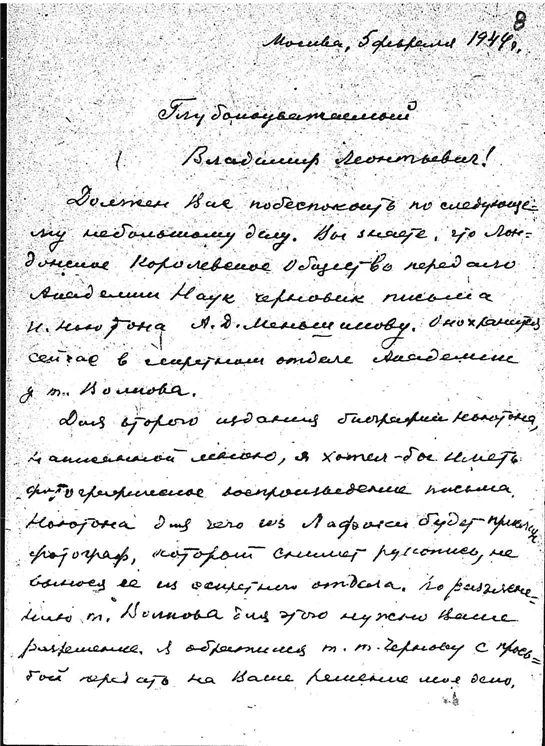 8
Москва, 5 февраля 1944 г.
Глубокоуважаемый
Владимир Леонтьевич!
Должен Вас побеспокоить по следующе=
му небольшому делу. Вы знаете, что Лон=
донское Королевское Общество передало
Академии Наук черновик письма
И. Ньютона А.Д. Меньшикову. Он хранится
сейчас в секретном отделе Академии
у т. Волкова.
Для второго издания биографии Ньютона,
написанной мною, я хотел-бы иметь
фотографическое воспроизведение письма
Ньютона для чего из Лафоки будет прислан
фотограф, который снимет рукопись, не
вынося ее из секретного отдела. По разъясне=
нию т. Волкова для этого нужно Ваше
разрешение. Я обратился к т. Чернову с прось=
бой передать на Ваше решение мое дело.